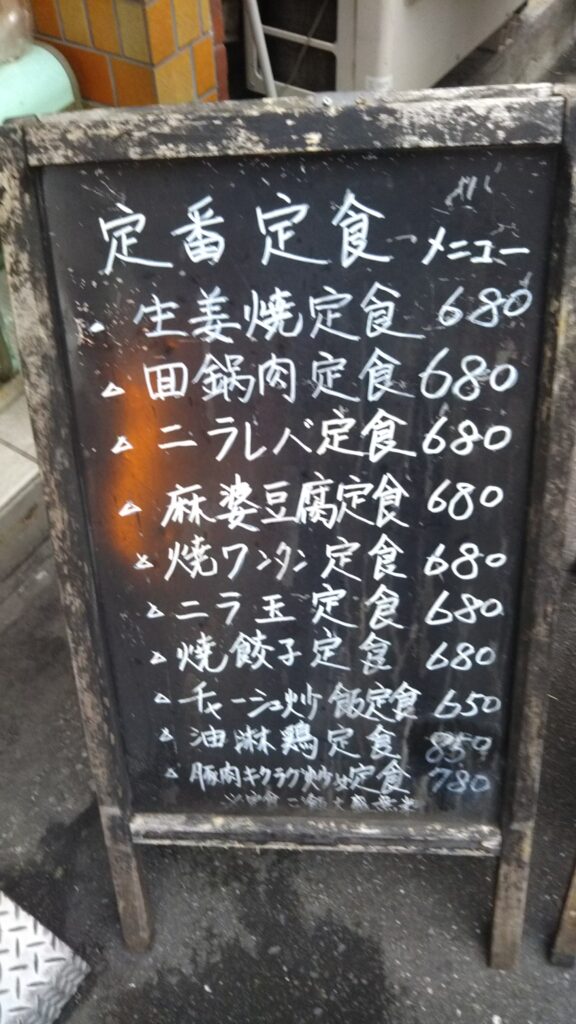 定番定食メニュー
生姜焼定食 680
回鍋肉定食 680
ニラレバ定食 680
麻婆豆腐定食 680
焼ワンタン定食 680
ニラ玉定食 680
焼餃子定食 680
チャーシュ炒飯定食 650
油淋鶏定食 850
豚肉キクラゲ炒め定食 780